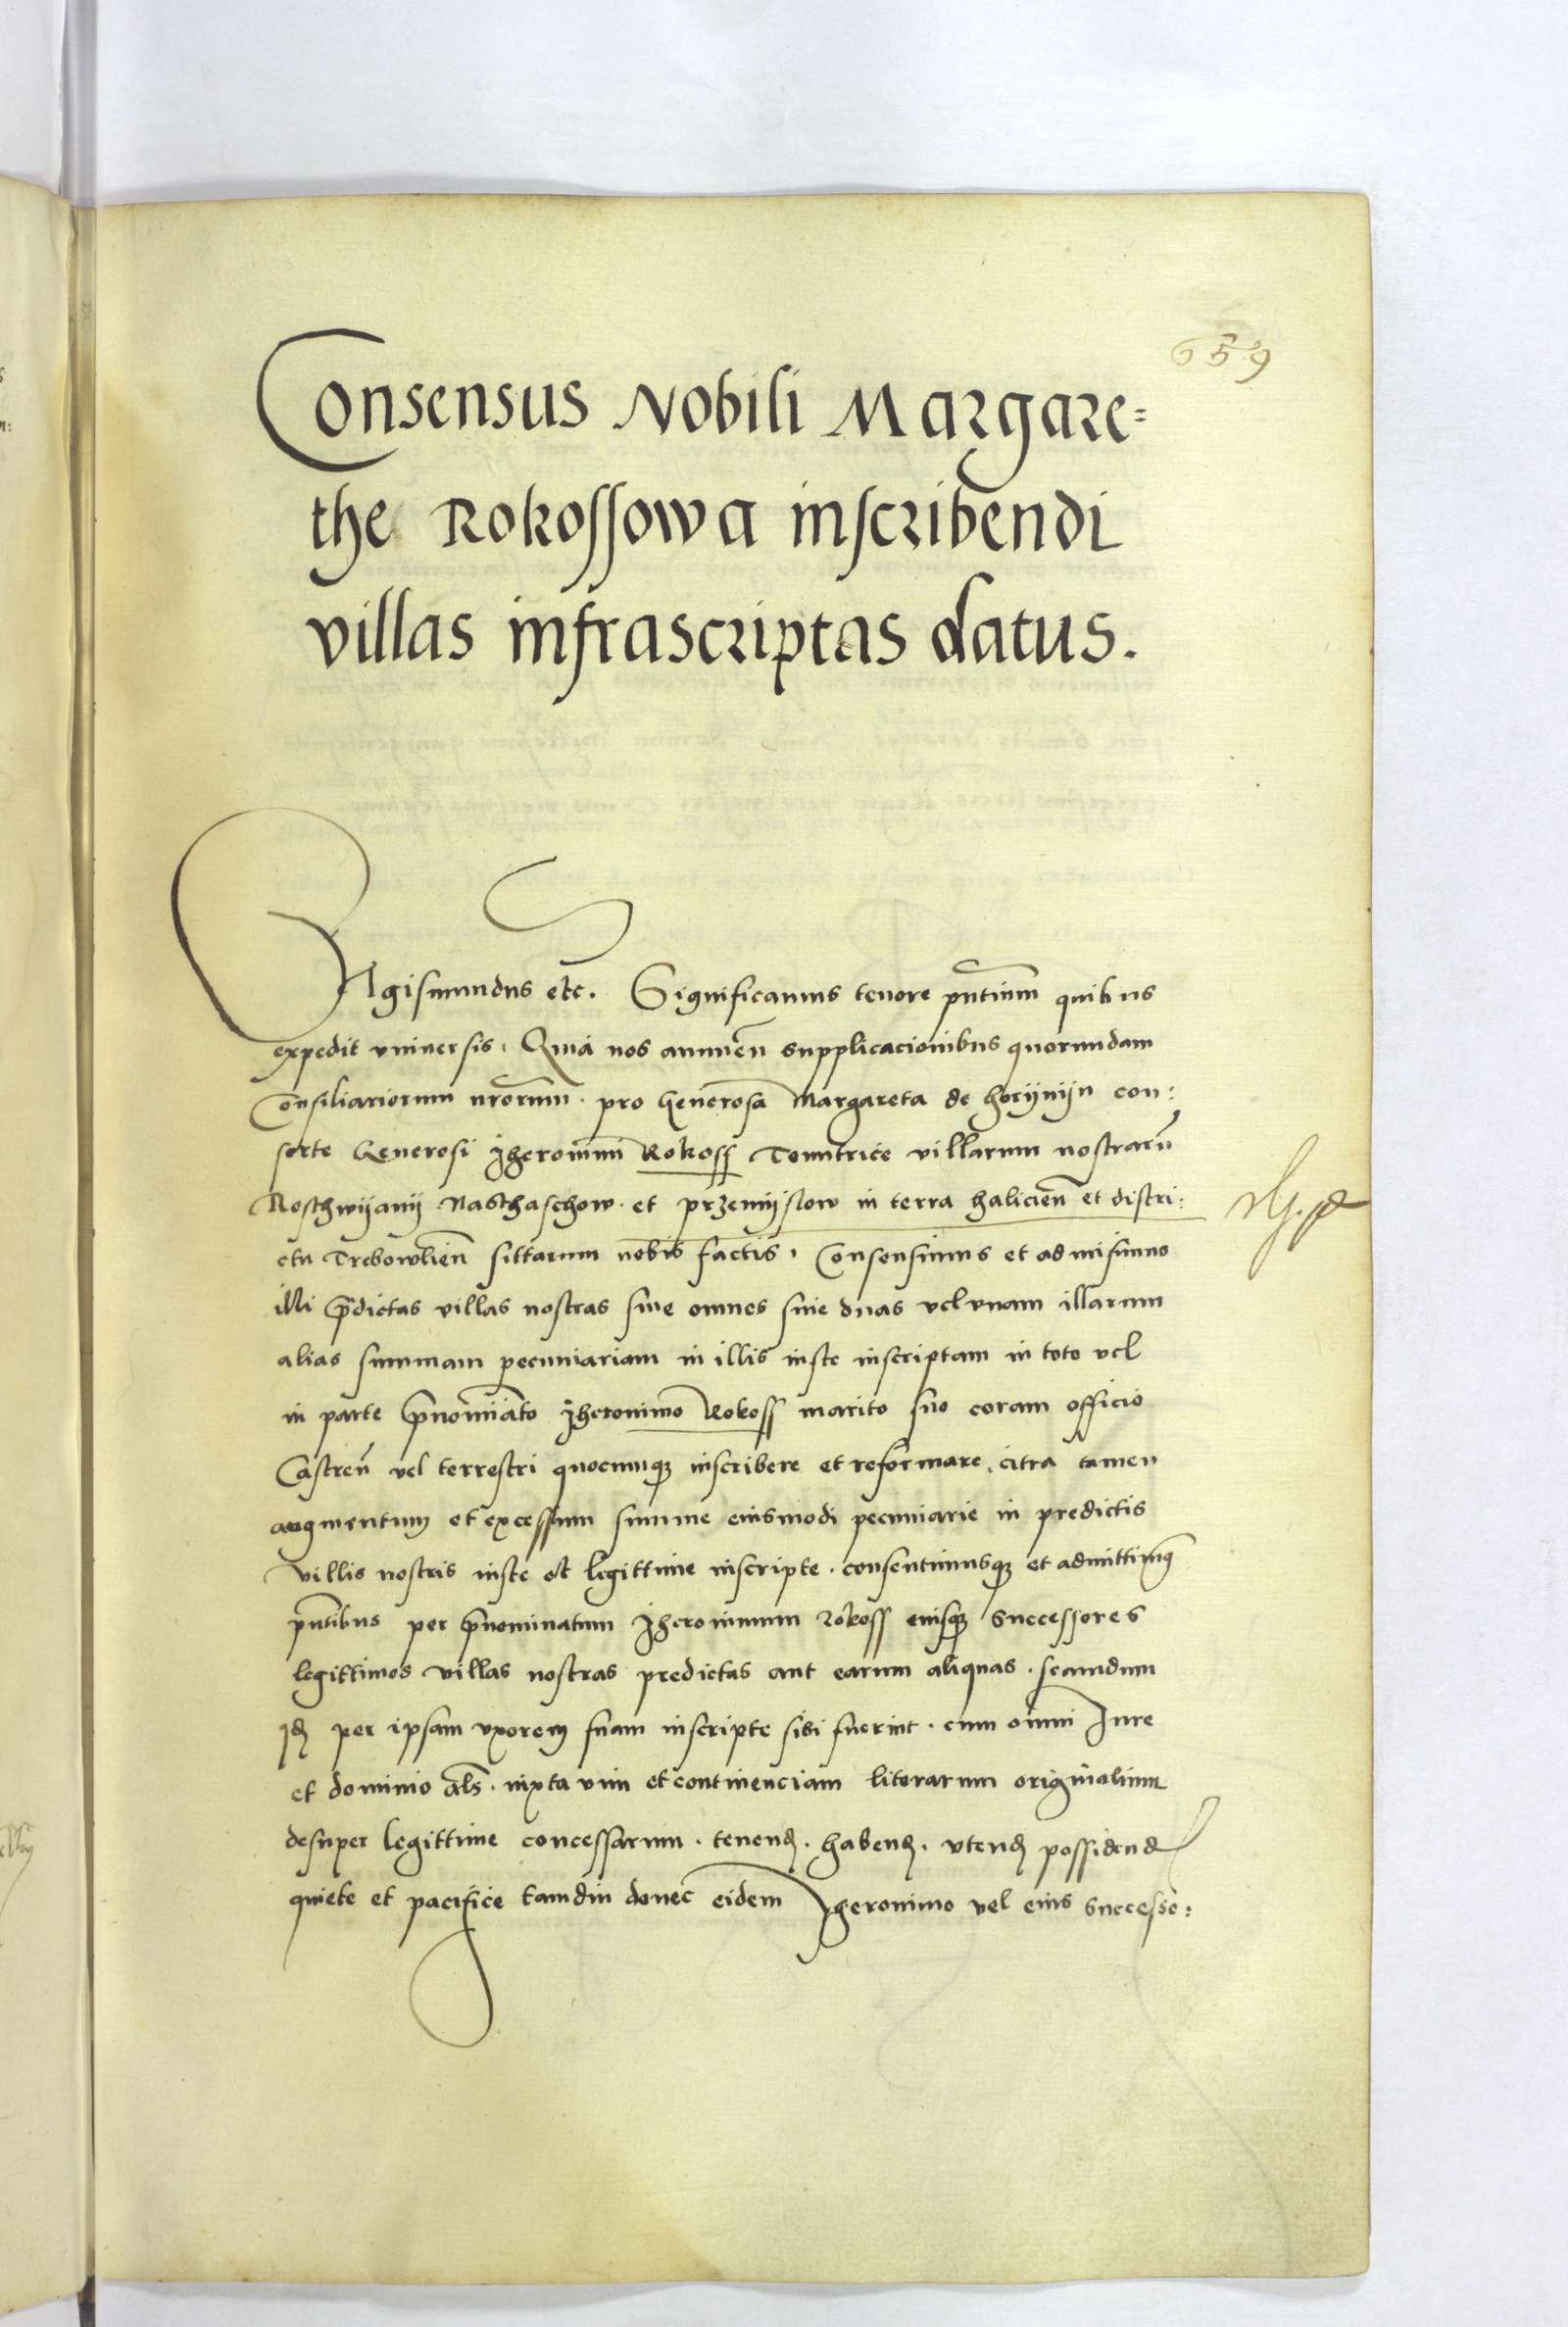 659
Consensus Nobili Margare=
the Rokossowa inscribendi
villas infrascriptas datus.
Sigismundus etc. Significamus tenore pñtium quibus
expedit vniuersis. Quia nos annuen̄ supplicacionibus quorundam
Consiliariorum nrōrum. pro Generosa Margareta de horÿnÿn con:
sorte Generosi Jheronimi Rokoss Tenutrice villarum nostrarū
Roschwÿanÿ Nasthaschow. et przemÿslow in terra halicien̄ et distri:
ctu Trebowlien̄ sittarum nobis factis. Consensimus et admisimus
illi p̄dictas villas nostras siue omnes siue duas vel vnam illarum
alias summam pecuniariam in illis iuste inscriptam in toto vel
in parte p̄nominato Jheronimo Rokoss marito suo coram officio
Castren̄ vel terrestri quocunqȝ inscribere et reformare. citra tamen
augmentum et excessum summe eiusmodi pecuniarie in predictis
villis nostris iuste et legittime inscripte. consentimusqȝ et admittimꝰ
pñtibus per p̄nominatum Jheronimum Rokoss eiusqȝ successores
legittimos villas nostras predictas aut earum aliquas. secundum
per ipsam vxorem suam inscripte sibi fuerint. cum omni Jure
et dominio al̄s. iuxta vim et continenciam literarum originalium
desuper legittime concessarum. tenend. habend. vtend possidend
quiete et pacifice tamdiu donec eidem Jheronimo vel eius successo: